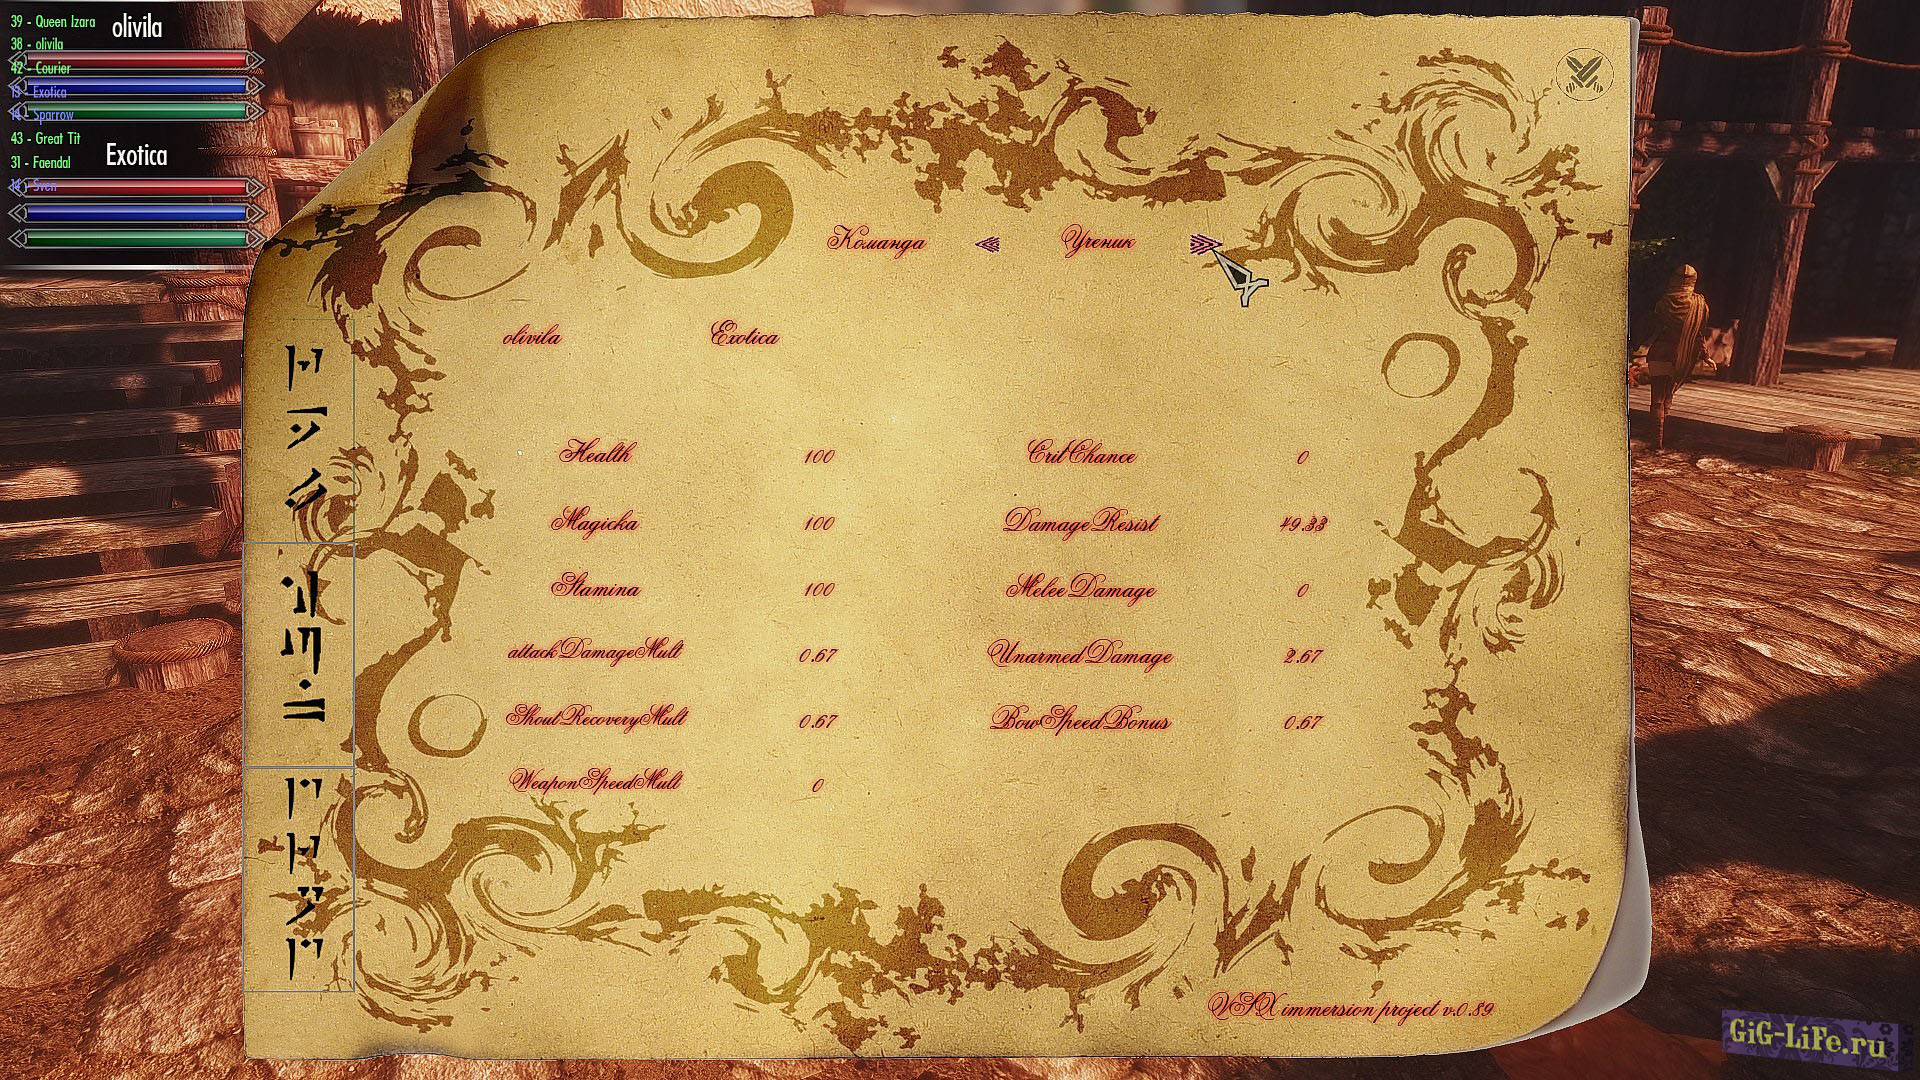 39 - Queen Izara
olivila
38 - olivila
42 - Courier
13 - Exotica
14 - Sparrow
43 - Great Tit
Exotica
31 - Faendal
14 - Sven
Команда Ученик
olivila Exotica
Health 100 CritChance 0
Magicka 100 DamageResist 49.33
Stamina 100 MeleeDamage 0
attackDamageMult 0.67 UnarmedDamage 2.67
ShoutRecoveryMult 0.67 BowSpeedBonus 0.67
WeaponSpeedMult 0
VSX immersion project v.0.89
GiG-LiFe.ru